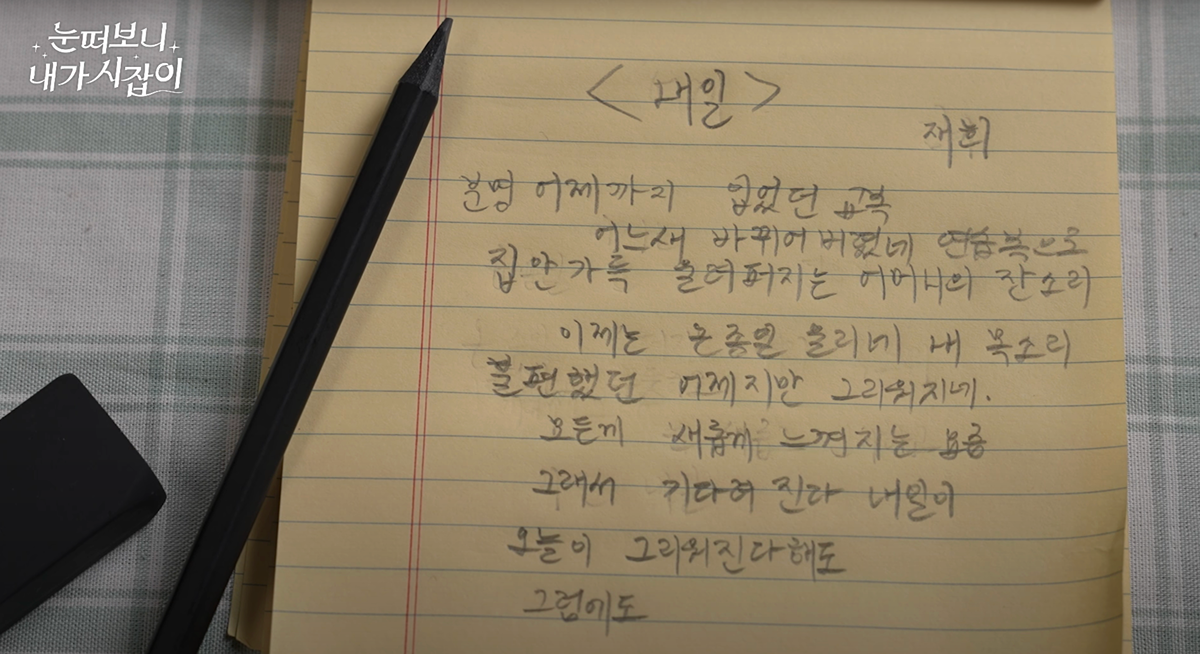 눈떠보니
내가 시집이
< 내일 >
재휘
분명 어제까지 입었던 교복
어느새 바뀌어버렸네 연습복으로
집안가득 울려퍼지는 어머니의 잔소리
이제는 온종일 울리네 내 목소리
불편했던 어제지만 그리워지네.
모든게 새롭게 느껴지는 요즘
그래서 기다려 진다 내일이
오늘이 그리워진다해도
그럼에도